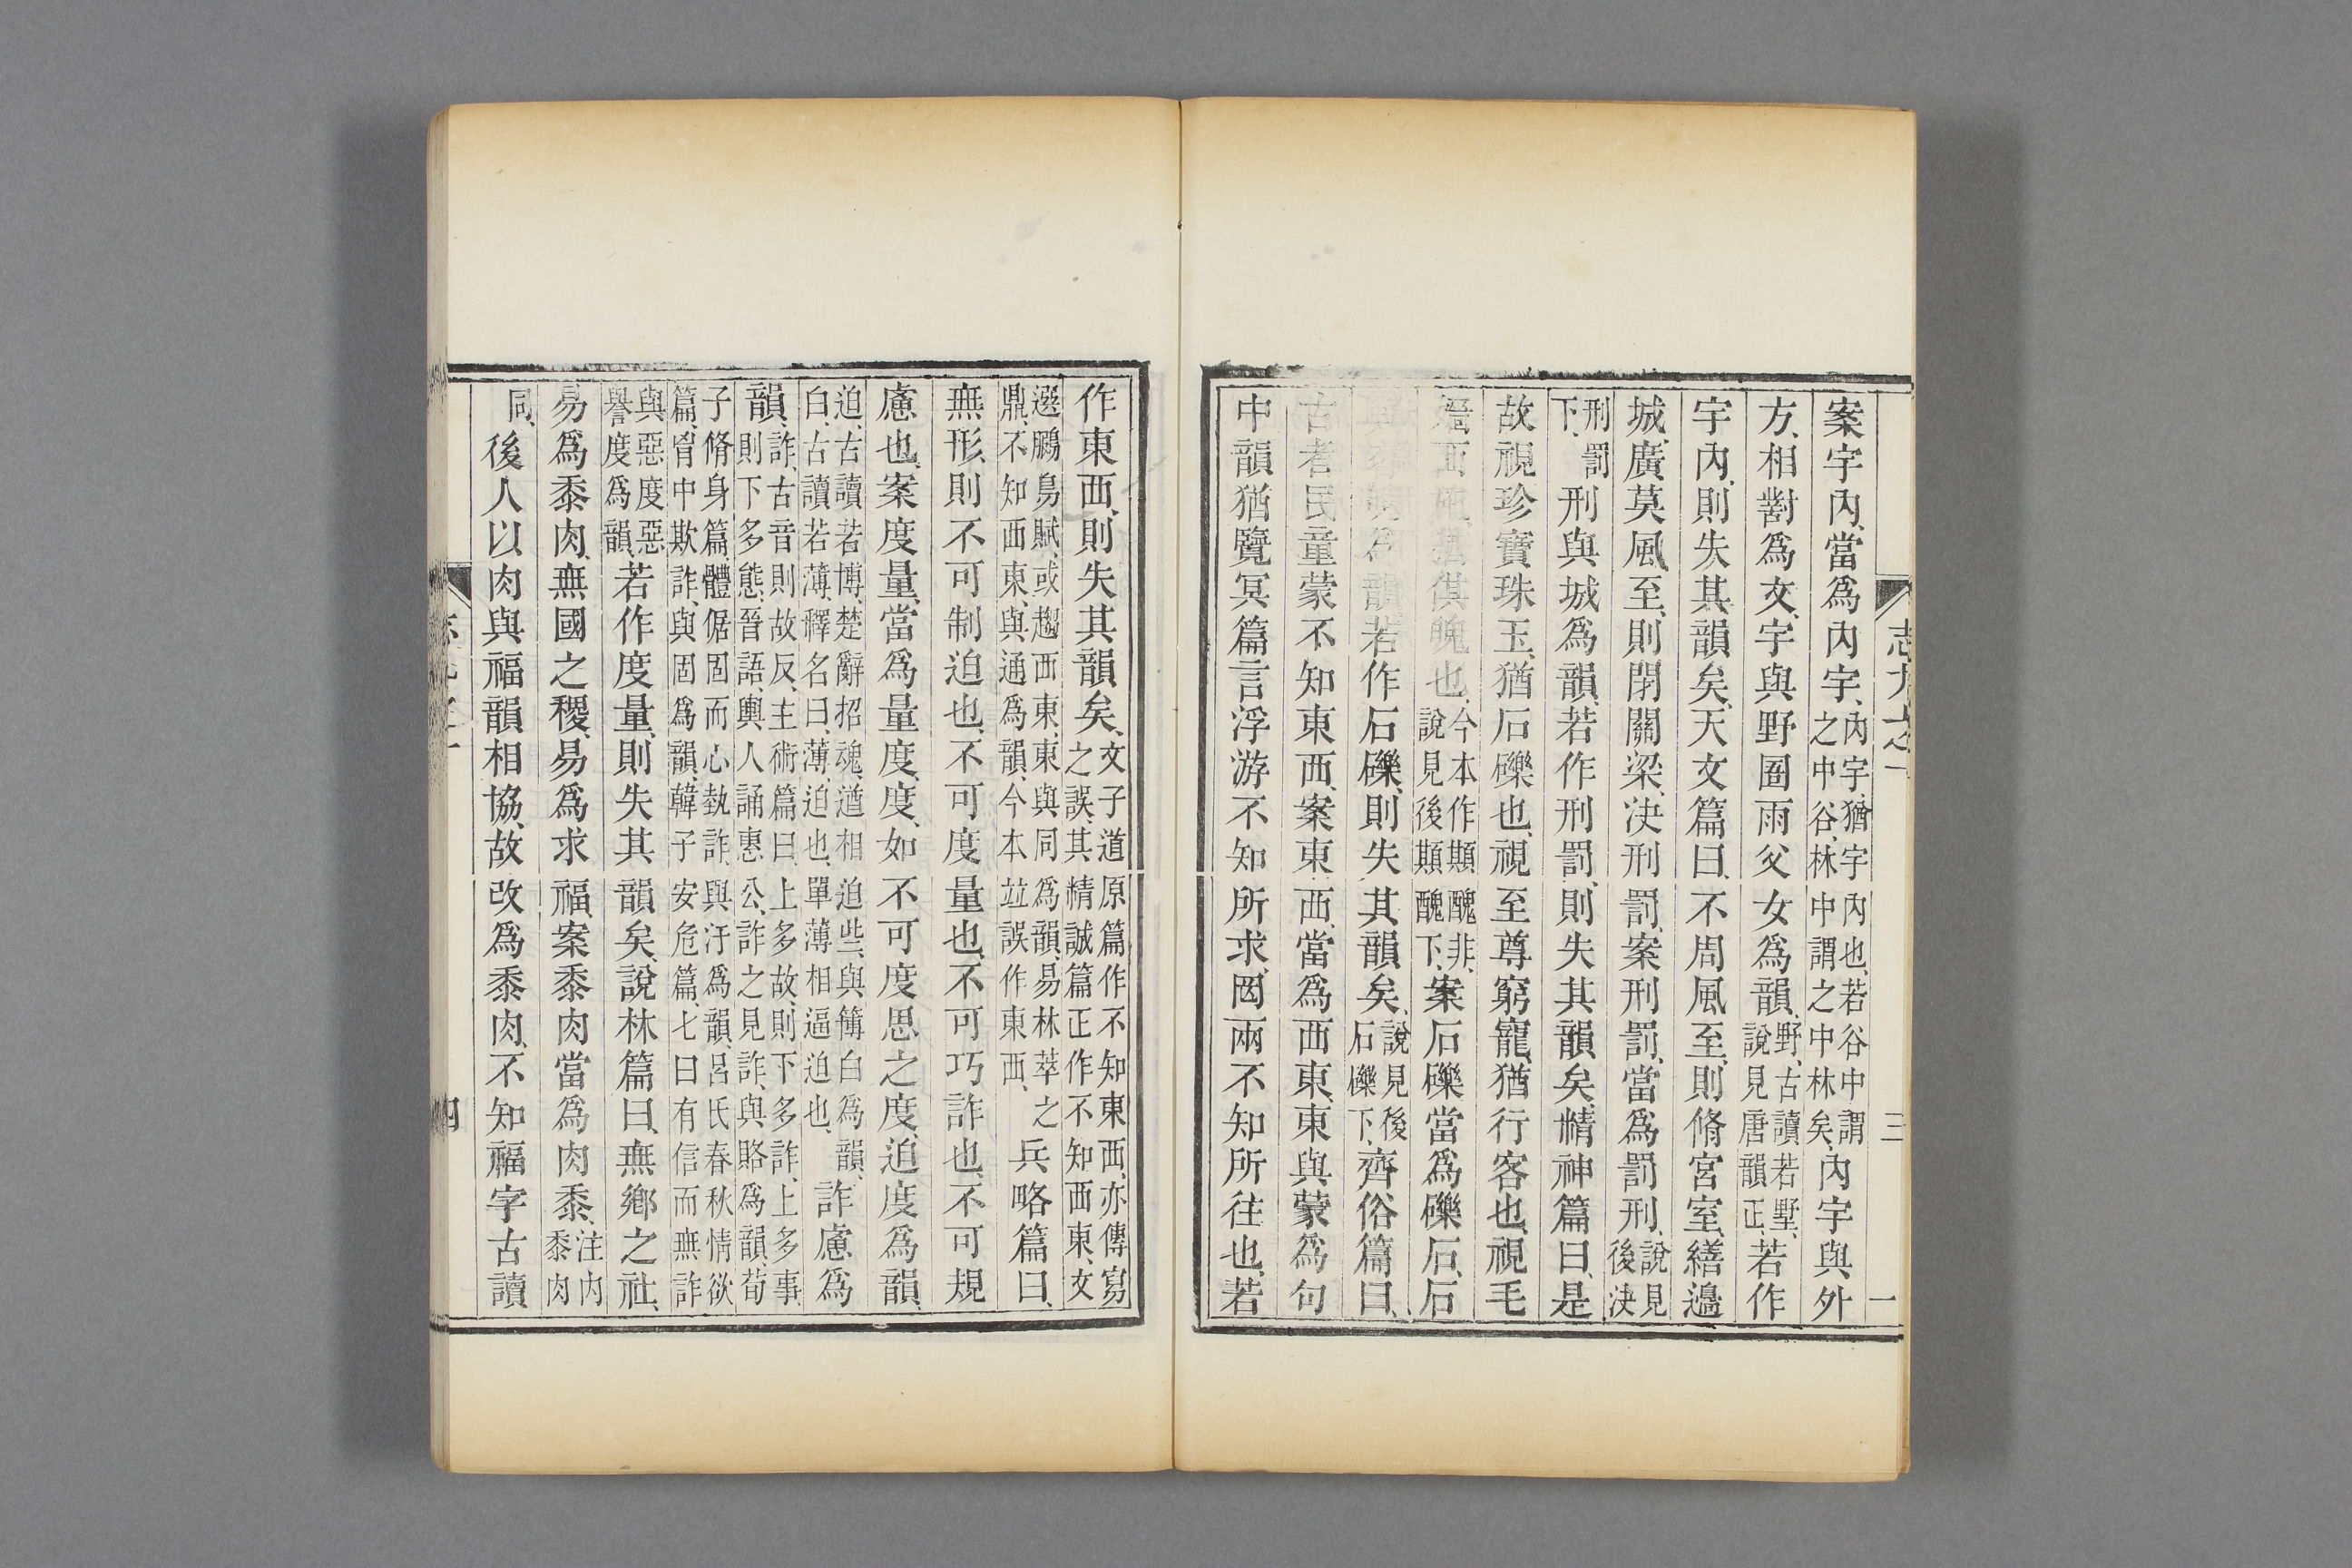 案宇內、當爲內宇、內宇、猶宇內也、若谷中謂之中谷、林中謂之中林矣、內宇與外
方、相對爲文、宇與野圉雨父女爲韻、野、古讀若墅、說見唐韻正、若作
宇內、則失其韻矣、天文篇曰、不周風至、則脩宮室、繕邊
城、廣莫風至、則閉關梁、決刑罰、案刑罰、當爲罰刑、說見後決
刑罰下、刑與城爲韻、若作刑罰、則失其韻矣、精神篇曰、是
故視珍寶珠玉、猶石礫也、視至尊窮寵、猶行客也、視毛
西施、猶䫏醜也、今本作䫏醜非、說見後䫏醜下、案石礫當爲礫石、石
爲韻、若作石礫、則失其韻矣、說見後石礫下、齊俗篇曰、
古者民童蒙不知東西、案東西、當爲西東、東與蒙爲句
中韻、猶覽冥篇言、浮游不知所求、罔兩不知所往也、若
志九之
三
作東西、則失其韻矣、文子道原篇作不知東西、亦傳寫之誤、其精誠篇正作不知西東、文
選鵩鳥賦、或趨西東、東與同爲韻、易林萃之鼎、不知西東、與通爲韻、今本竝誤作東西、兵略篇曰、
無形、則不可制迫也、不可度量也、不可巧詐也、不可規
慮也、案度量、當爲量度、度、如不可度思之度、迫度爲韻、
迫、古讀若博、楚辭招魂、遒相迫些、與簙白爲韻、白、古讀若薄、釋名曰、薄、迫也、單薄相逼迫也、詐慮爲
韻、詐、古音則故反、主術篇曰、上多故、則下多詐、上多事、則下多態、晉語、輿人誦惠公、詐之見詐、與賂爲韻、荀
子脩身篇、體倨固而心埶詐、與汙爲韻、呂氏春秋情欲篇、胷中欺詐、與固爲韻、韓子安危篇、七曰有信而無詐
與惡度惡譽度爲韻、若作度量、則失其韻矣、說林篇曰、無鄉之社、
易爲黍肉、無國之稷、易爲求福、案黍肉當爲肉黍、注內黍肉
同、後人以肉與福韻相協、故改爲黍肉、不知福字古讀
四